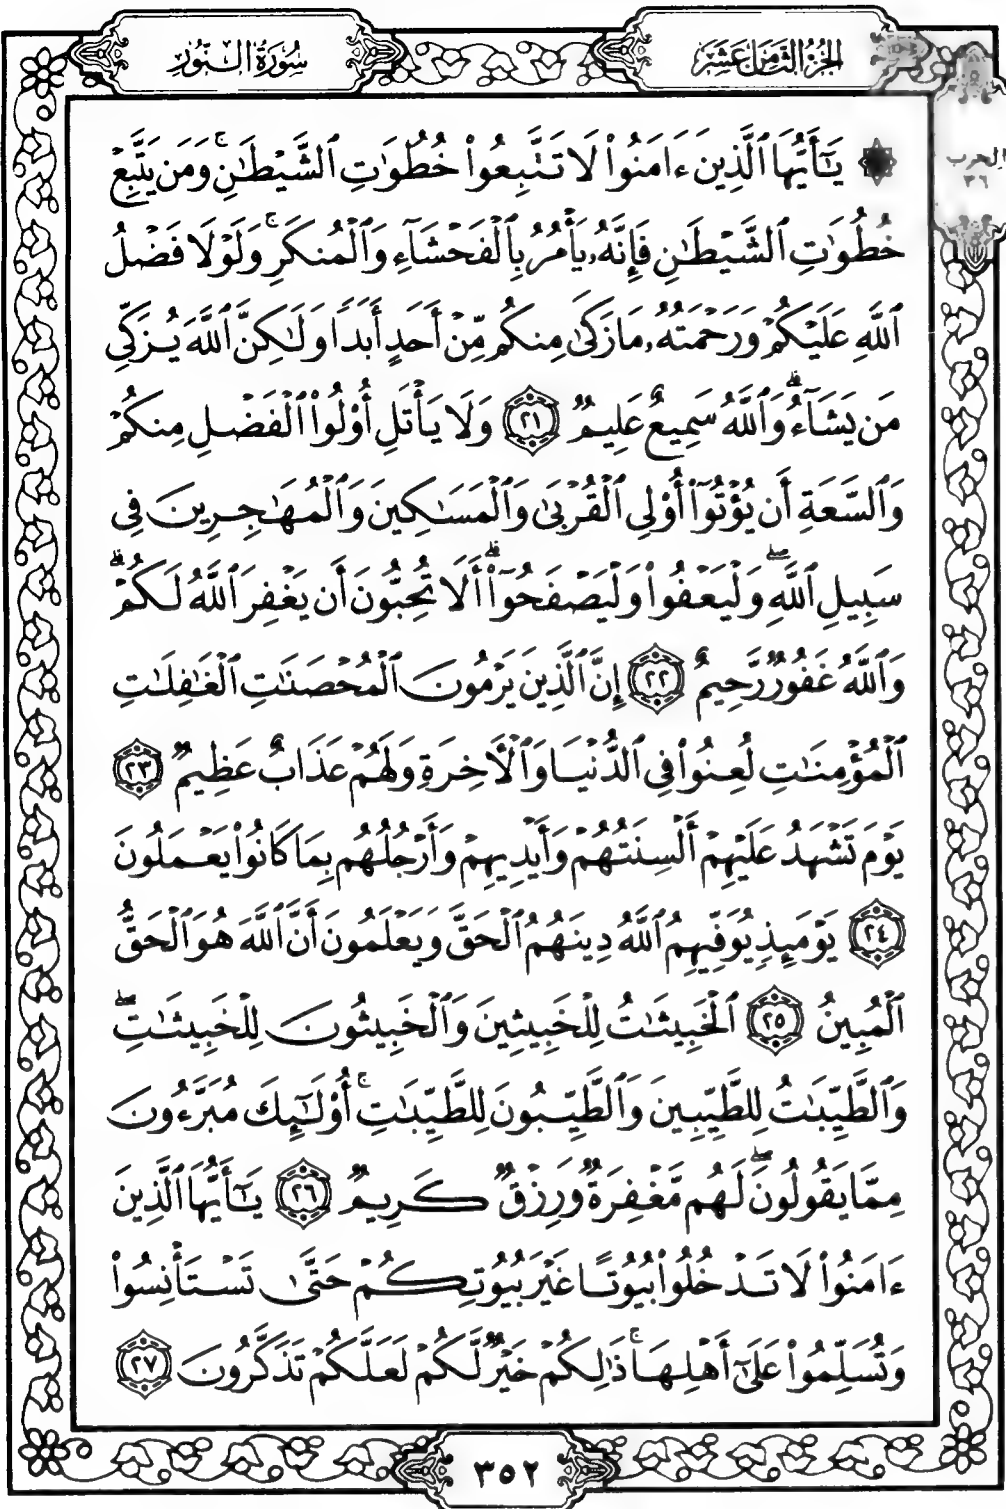 الجزء الثامن عشر
سورة النور
الحزب
٣٦
۞ يَـٰٓأَيُّهَا ٱلَّذِينَ ءَامَنُوا۟ لَا تَتَّبِعُوا۟ خُطُوَٰتِ ٱلشَّيْطَـٰنِ ۚ وَمَن يَتَّبِعْ
خُطُوَٰتِ ٱلشَّيْطَـٰنِ فَإِنَّهُۥ يَأْمُرُ بِٱلْفَحْشَآءِ وَٱلْمُنكَرِ ۚ وَلَوْلَا فَضْلُ
ٱللَّهِ عَلَيْكُمْ وَرَحْمَتُهُۥ مَا زَكَىٰ مِنكُم مِّنْ أَحَدٍ أَبَدًا وَلَـٰكِنَّ ٱللَّهَ يُزَكِّى
مَن يَشَآءُ ۗ وَٱللَّهُ سَمِيعٌ عَلِيمٌ ٢١ وَلَا يَأْتَلِ أُو۟لُوا۟ ٱلْفَضْلِ مِنكُمْ
وَٱلسَّعَةِ أَن يُؤْتُوٓا۟ أُو۟لِى ٱلْقُرْبَىٰ وَٱلْمَسَـٰكِينَ وَٱلْمُهَـٰجِرِينَ فِى
سَبِيلِ ٱللَّهِ ۖ وَلْيَعْفُوا۟ وَلْيَصْفَحُوٓا۟ ۗ أَلَا تُحِبُّونَ أَن يَغْفِرَ ٱللَّهُ لَكُمْ ۗ
وَٱللَّهُ غَفُورٌ رَّحِيمٌ ٢٢ إِنَّ ٱلَّذِينَ يَرْمُونَ ٱلْمُحْصَنَـٰتِ ٱلْغَـٰفِلَـٰتِ
ٱلْمُؤْمِنَـٰتِ لُعِنُوا۟ فِى ٱلدُّنْيَا وَٱلْـَٔاخِرَةِ وَلَهُمْ عَذَابٌ عَظِيمٌ ٢٣
يَوْمَ تَشْهَدُ عَلَيْهِمْ أَلْسِنَتُهُمْ وَأَيْدِيهِمْ وَأَرْجُلُهُم بِمَا كَانُوا۟ يَعْمَلُونَ
٢٤ يَوْمَئِذٍ يُوَفِّيهِمُ ٱللَّهُ دِينَهُمُ ٱلْحَقَّ وَيَعْلَمُونَ أَنَّ ٱللَّهَ هُوَ ٱلْحَقُّ
ٱلْمُبِينُ ٢٥ ٱلْخَبِيثَـٰتُ لِلْخَبِيثِينَ وَٱلْخَبِيثُونَ لِلْخَبِيثَـٰتِ ۖ
وَٱلطَّيِّبَـٰتُ لِلطَّيِّبِينَ وَٱلطَّيِّبُونَ لِلطَّيِّبَـٰتِ ۚ أُو۟لَـٰٓئِكَ مُبَرَّءُونَ
مِمَّا يَقُولُونَ ۖ لَهُم مَّغْفِرَةٌ وَرِزْقٌ كَرِيمٌ ٢٦ يَـٰٓأَيُّهَا ٱلَّذِينَ
ءَامَنُوا۟ لَا تَدْخُلُوا۟ بُيُوتًا غَيْرَ بُيُوتِكُمْ حَتَّىٰ تَسْتَأْنِسُوا۟
وَتُسَلِّمُوا۟ عَلَىٰٓ أَهْلِهَا ۚ ذَٰلِكُمْ خَيْرٌ لَّكُمْ لَعَلَّكُمْ تَذَكَّرُونَ ٢٧
٣٥٢